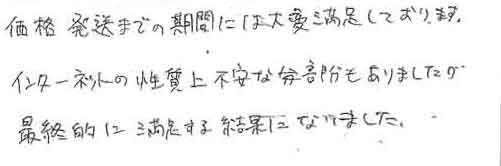 価格 発送までの期間には大変満足しております。
インターネットの性質上 不安な部分もありましたが
最終的に満足する結果になりました。